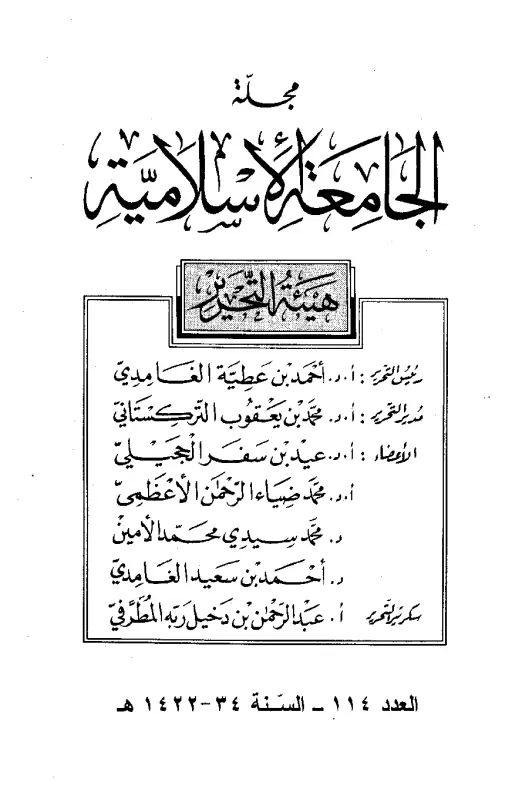 مجلة
الجامعة الإسلامية
هيئة التحرير
رئيس التحرير : أ.د. أحمد بن عطية الغامدي
مدير التحرير : أ.د. محمد بن يعقوب التركستاني
الأعضاء : أ.د. عيد بن سفر الحجيلي
أ.د. محمد ضياء الرحمن الأعظمي
د. محمد سيدي محمد الأمين
د. أحمد بن سعيد الغامدي
سكرتير التحرير أ. عبد الرحمن بن دخيل ربه المطرفي
العدد ١١٤ - السنة ٣٤-١٤٢٢ هـ